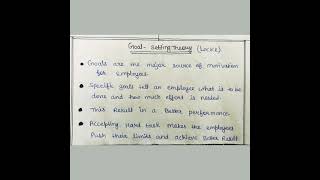 Goal-Setting Theory (Locke)
Goals are the major source of motivation
for employees
Specific goals tell an employee what is to be
done and how much effort is needed.
This Result in a Better performance.
Accepting Hard task makes the employees
Push their limits and achieve Better Result